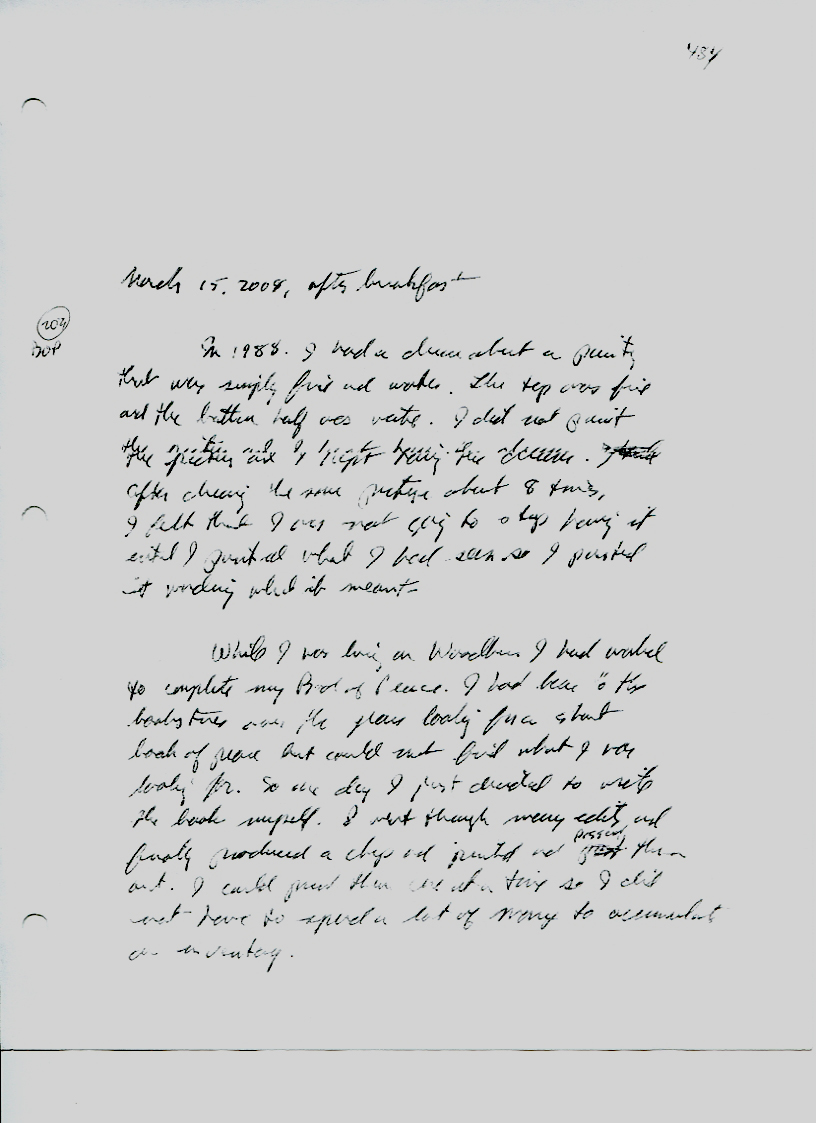 484
March 15, 2008, after breakfast
204
BOP
In 1988. I had a dream about a painting
that was simply fire and water. The top was fire
and the bottom half was water. I did not paint
the picture and I kept having the dream.
after dreaming the same picture about 8 times,
I felt that I was not going to stop having it
until I painted what I had seen so I painted
it wondering what it meant.
While I was living on Woodburn I had worked
to complete my Book of Peace. I had been to the
bookstores over the years looking for a short
book of peace but could not find what I was
looking for. So one day I just decided to write
the book myself. I went through many edits and
finally produced a cheap and printed and passing them
out. I could print them one at a time so I did
not have to spend a lot of money to accumulate
an inventory.